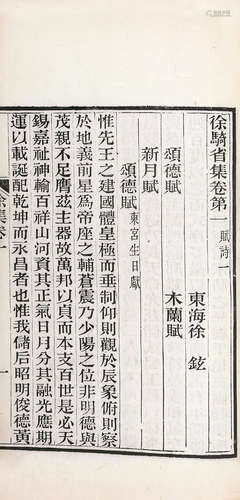 徐騎省集卷第一 賦詩一
東海徐 鉉
頌德賦 木蘭賦
新月賦
頌德賦 東宮生日獻
惟先王之建國體皇極而垂制仰則觀於辰象俯則察
於地義前星為帝座之輔蒼震乃少陽之位非明德與
茂親不足膺茲主器故萬邦以貞而本支百世是必天
錫嘉祉神輸百祥山河資其正氣日月分其融光應期
運以載誕乾坤而永昌者也惟我儲后昭明俊德黃
集卷一 一